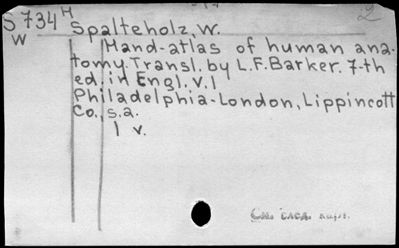 S 734 H
W
2
Spalteholz, W.
Hand-atlas of human ana-
tomy. Transl. by L.F. Barker. 7-th
ed. in Engl. v. 1
Philadelphia-London, Lippincott
Co., s.a.
1 v.